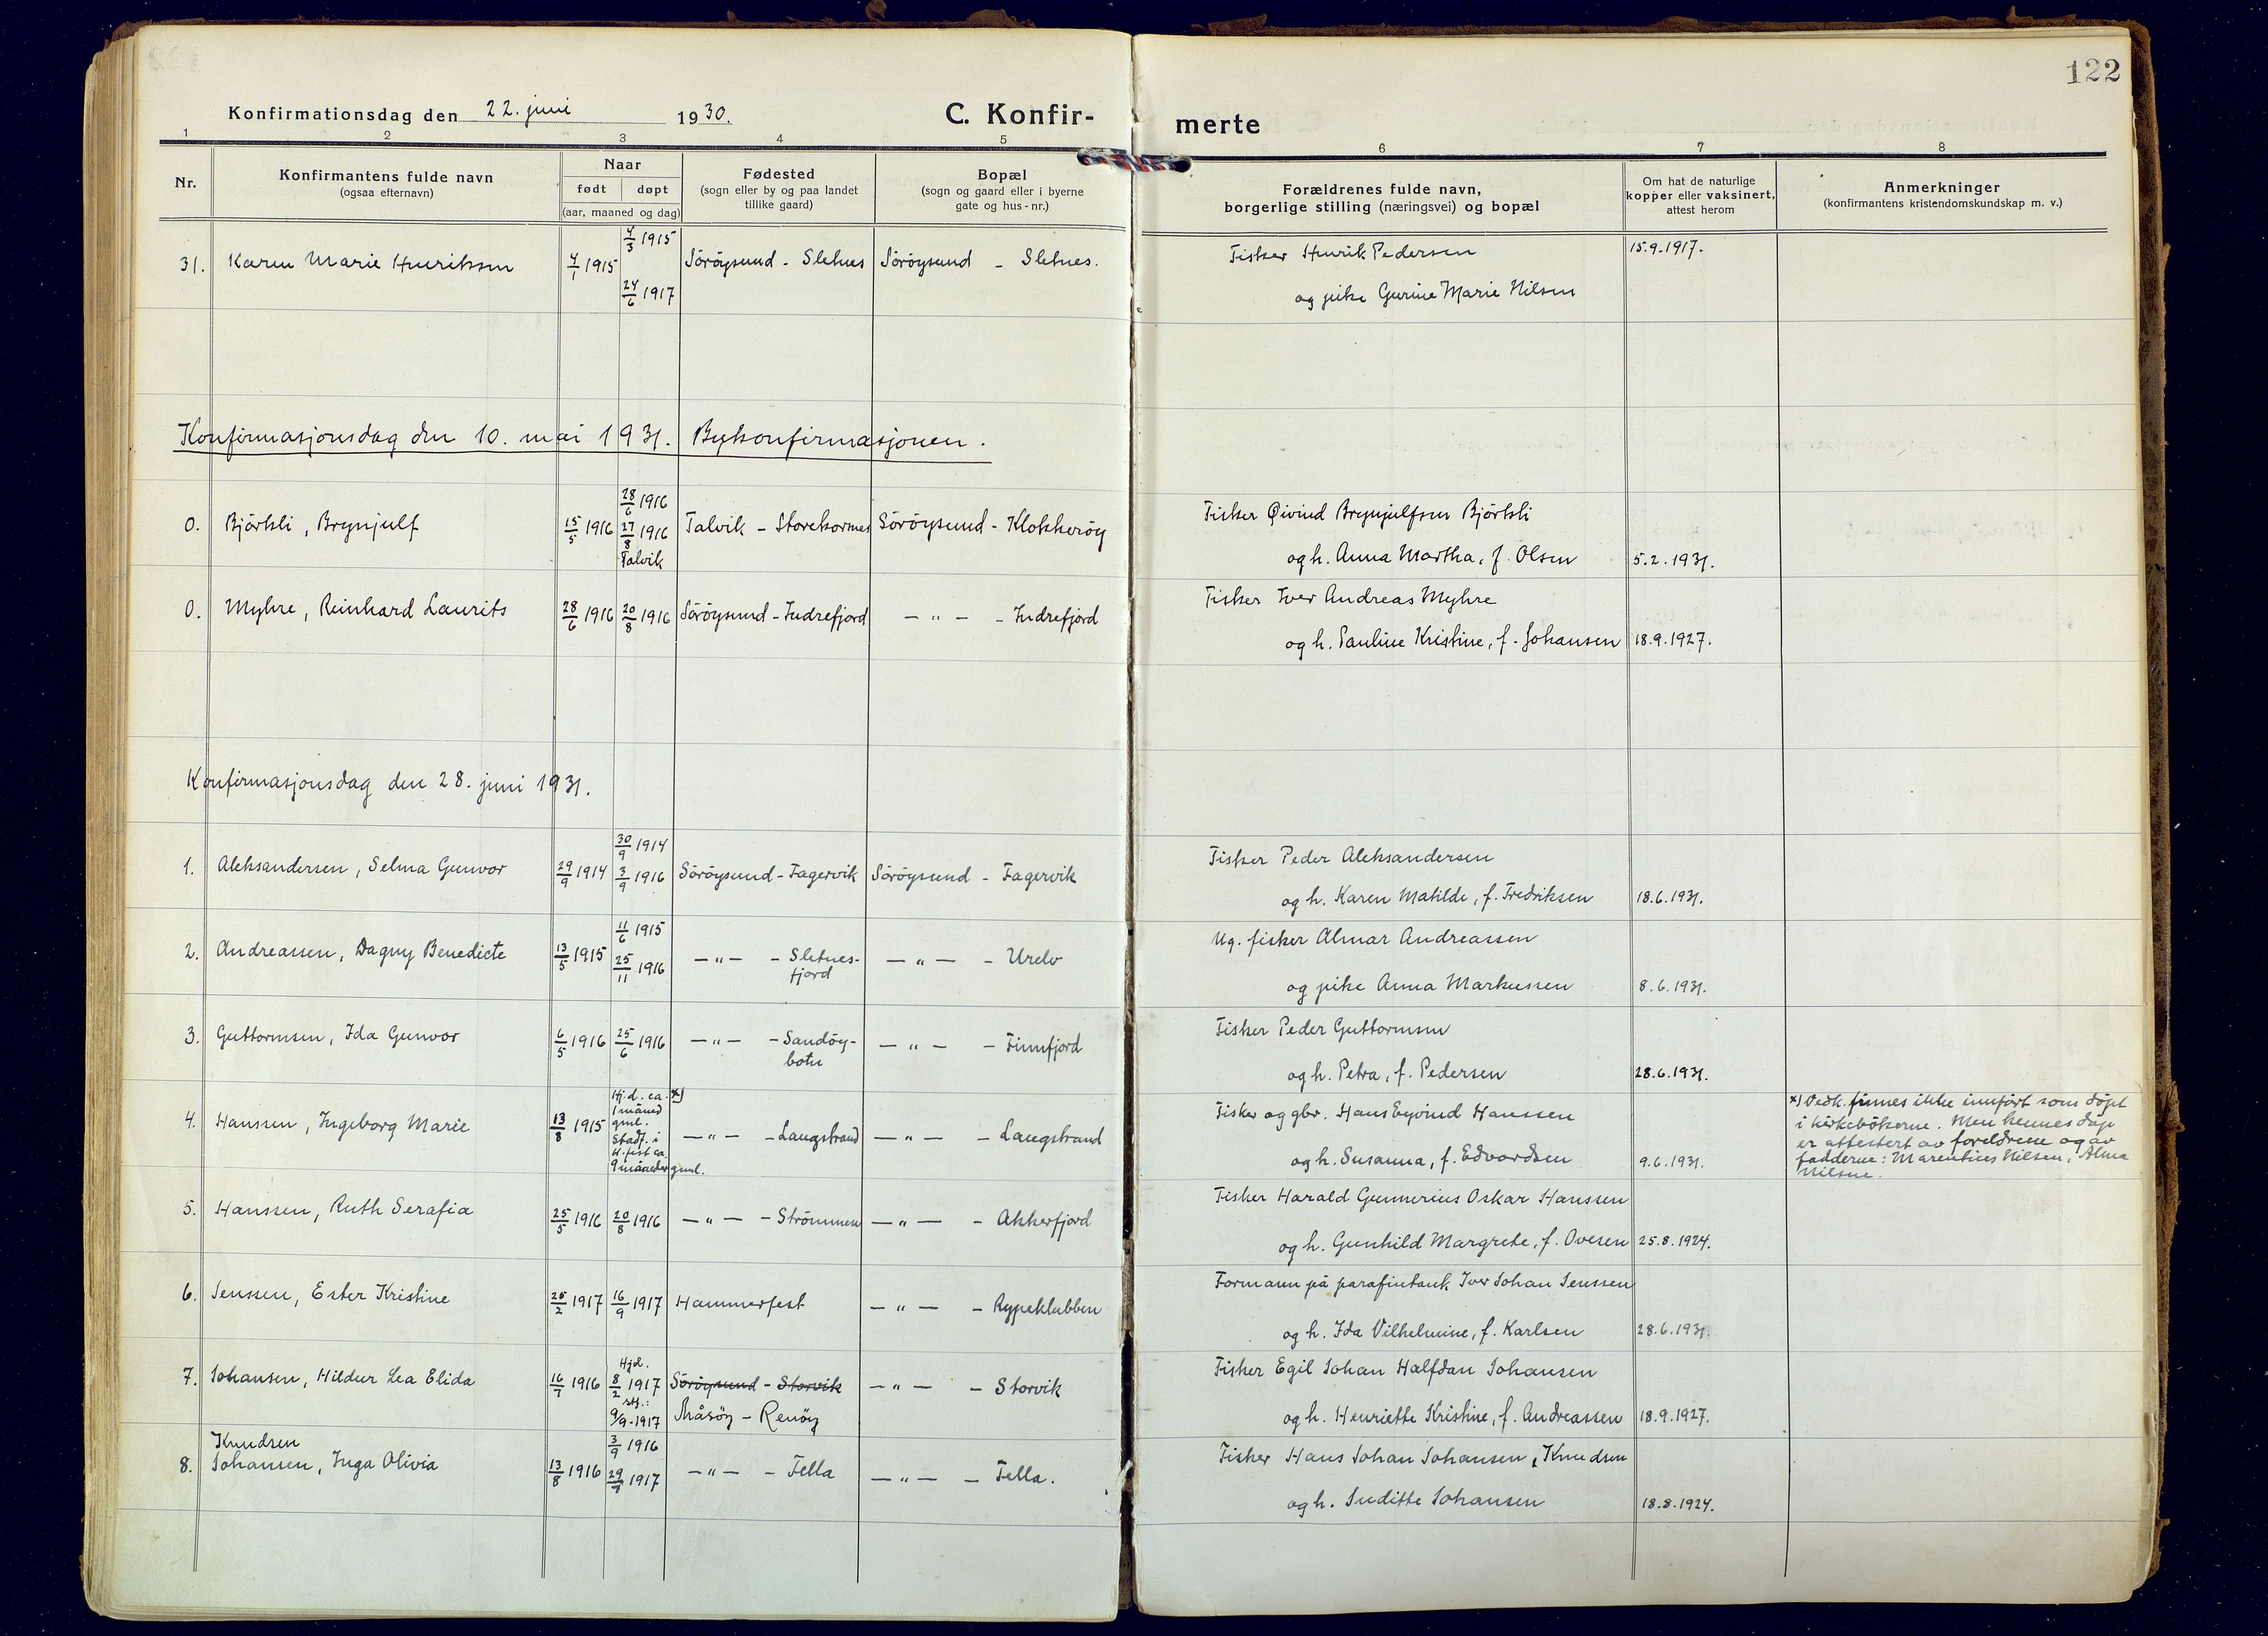 122
Konfirmationsdag den 22. juni 1930.
C. Konfir-
merte
1 2 3 4 5 6 7 8
Nr.
Konfirmantens fulde navn
(ogsaa efternavn)
Naar
født døpt
(aar, maaned og dag)
Fødested
(sogn eller by og paa landet
tillike gaard)
Bopæl
(sogn og gaard eller i byerne
gate og hus-nr.)
Forældrenes fulde navn,
borgerlige stilling (næringsvei) og bopæl
Om hat de naturlige
kopper eller vaksinert,
attest herom
Anmerkninger
(konfirmantens kristendomskundskap m. v.)
4/3 1915
31. Karen Marie Henriksen 4/1 1915 Söröysund - Sletnes Söröysund - Sletnes. Fisker Henrik Pedersen 15.9.1917.
24/6 1917 og pike Gurine Marie Nilsen
Konfirmasjonsdag den 10. mai 1931. Bykonfirmasjonen.
28/6 1916
0. Björkli, Brynjulf 15/5 1916 27/8 1916 Talvik - Storekorsnes Söröysund - Klokkeröy Fisker Öivind Brynjulfsen Björkli
Talvik og h. Anna Martha, f. Olsen 5.2.1931.
0. Myhre, Reinhard Laurits 28/6 1916 20/8 1916 Söröysund - Indrefjord - " - - Indrefjord Fisker Iver Andreas Myhre
og h. Pauline Kristine, f. Johansen 18.9.1927.
Konfirmasjonsdag den 28. juni 1931.
30/9 1914
1. Aleksandersen, Selma Gunvor 29/9 1914 3/9 1916 Söröysund - Fagervik Söröysund - Fagervik Fisker Peder Aleksandersen
og h. Karen Matilde, f. Fredriksen 18.6.1931.
11/6 1915
2. Andreassen, Dagny Benedicte 13/5 1915 25/11 1916 - " - - Sletnes-
fjord - " - - Urelv Ug. fisker Almar Andreassen
og pike Anna Markussen 8.6.1931.
3. Guttormsen, Ida Gunvor 6/5 1916 25/6 1916 - " - - Sandöy-
botn - " - - Finnfjord Fisker Peder Guttormsen
og h. Petra, f. Pedersen 28.6.1931.
4. Hanssen, Ingeborg Marie 13/8 1915 Hj.d. ca. x)
1 måned
gml.
Stadf. i
H.fest ca.
9 måneder gml.
- " - - Langstrand - " - - Langstrand Fisker og gbr. Hans Eyvind Hanssen
og h. Susanna, f. Edvardsen 9.6.1931.
x) Vedk. finnes ikke innfört som döpt
i kirkebökerne. Men hennes dåp
er attestert av foreldrene og av
fadderne: Marentius Nilsen, Alma
Nilsen.
5. Hanssen, Ruth Serafia 25/5 1916 20/8 1916 - " - - Strömmen - " - - Akkerfjord Fisker Harald Gunnerius Oskar Hanssen
og h. Gunhild Margrete, f. Ovesen 25.8.1924.
6. Jenssen, Ester Kristine 25/2 1917 16/9 1917 Hammerfest - " - - Rypeklubben Formann på parafintank Iver Johan Jenssen
og h. Ida Vilhelmine, f. Karlsen 28.6.1931.
Hjd.
7. Johansen, Hildur Lea Elida 16/7 1916 8/2 1917 Söröysund - Storvik - " - - Storvik Fisker Egil Johan Halfdan Johansen
stf.:
9/9-1917 Måsöy - Renöy og h. Henriette Kristine, f. Andreassen 18.9.1927.
Knudsen 3/9 1916
8. Johansen, Inga Olivia 13/8 1916 29/7 1917 - " - - Fella - " - - Fella. Fisker Hans Johan Johansen, Knudsen
og h. Juditte Johansen 18.8.1924.